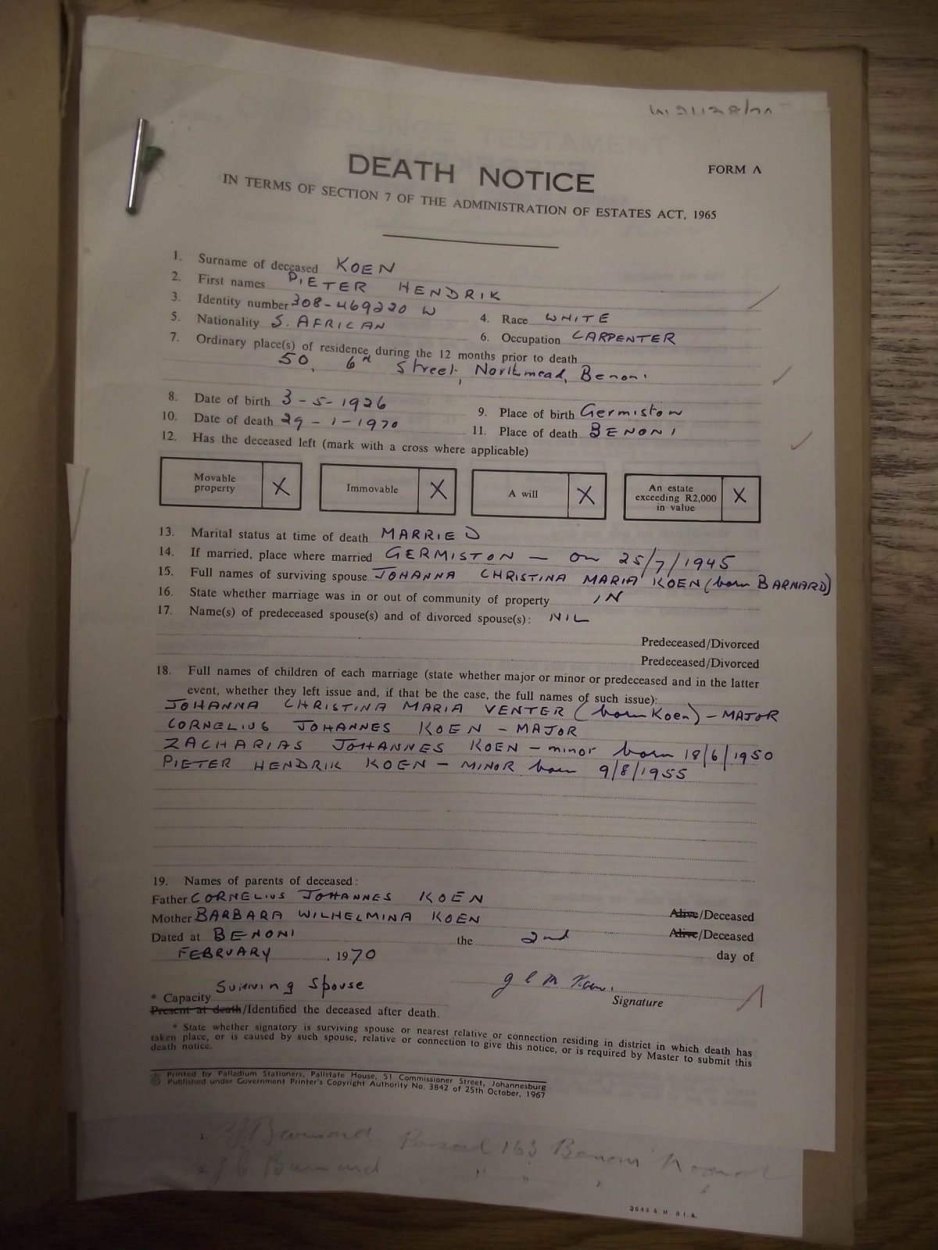 DEATH NOTICE
FORM A
IN TERMS OF SECTION 7 OF THE ADMINISTRATION OF ESTATES ACT, 1965
1. Surname of deceased KOEN
2. First names PIETER HENDRIK
3. Identity number 308-469220 W 4. Race WHITE
5. Nationality S. AFRICAN 6. Occupation CARPENTER
7. Ordinary place(s) of residence during the 12 months prior to death
50, 6th Street, Northmead, Benoni
8. Date of birth 3-5-1926 9. Place of birth Germiston
10. Date of death 29-1-1970 11. Place of death BENONI
12. Has the deceased left (mark with a cross where applicable)
Movable property X Immovable X A will X An estate exceeding R2,000 in value X
13. Marital status at time of death MARRIED
14. If married, place where married GERMISTON — on 25/7/1945
15. Full names of surviving spouse JOHANNA CHRISTINA MARIA KOEN (born BARNARD)
16. State whether marriage was in or out of community of property IN
17. Name(s) of predeceased spouse(s) and of divorced spouse(s): NIL
Predeceased/Divorced
Predeceased/Divorced
18. Full names of children of each marriage (state whether major or minor or predeceased and in the latter
event, whether they left issue and, if that be the case, the full names of such issue):
JOHANNA CHRISTINA MARIA VENTER (born Koen) - MAJOR
CORNELIUS JOHANNES KOEN - MAJOR
ZACHARIAS JOHANNES KOEN - minor born 18/6/1950
PIETER HENDRIK KOEN - MINOR born 9/8/1955
19. Names of parents of deceased:
Father CORNELIUS JOHANNES KOEN Alive/Deceased
Mother BARBARA WILHELMINA KOEN Alive/Deceased
Dated at BENONI the 2nd day of
FEBRUARY, 1970
* Capacity Surviving Spouse Signature
Present at death/Identified the deceased after death.
* State whether signatory is surviving spouse or nearest relative or connection residing in district in which death has
taken place, or is caused by such spouse, relative or connection to give this notice, or is required by Master to submit this
death notice.
Printed by Palladium Stationers, Pallstate House, 51 Commissioner Street, Johannesburg
Published under Government Printer's Copyright Authority No. 3842 of 25th October, 1967
163 Benoni